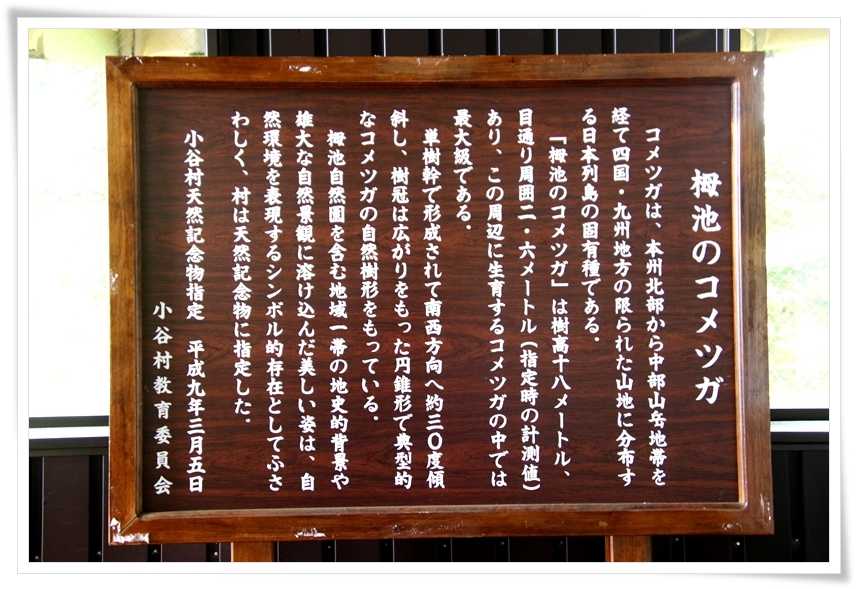 栂池のコメツガ
コメツガは、本州北部から中部山岳地帯を
経て四国・九州地方の限られた山地に分布す
る日本列島の固有種である。
「栂池のコメツガ」は樹高十八メートル、
目通り周囲二・六メートル(指定時の計測値)
あり、この周辺に生育するコメツガの中では
最大級である。
単樹幹で形成されて南西方向へ約三〇度傾
斜し、樹冠は広がりをもった円錐形で典型的
なコメツガの自然樹形をもっている。
栂池自然園を含む地域一帯の地史的背景や
雄大な自然景観に溶け込んだ美しい姿は、自
然環境を表現するシンボル的存在としてふさ
わしく、村は天然記念物に指定した。
小谷村天然記念物指定 平成九年三月五日
小谷村教育委員会